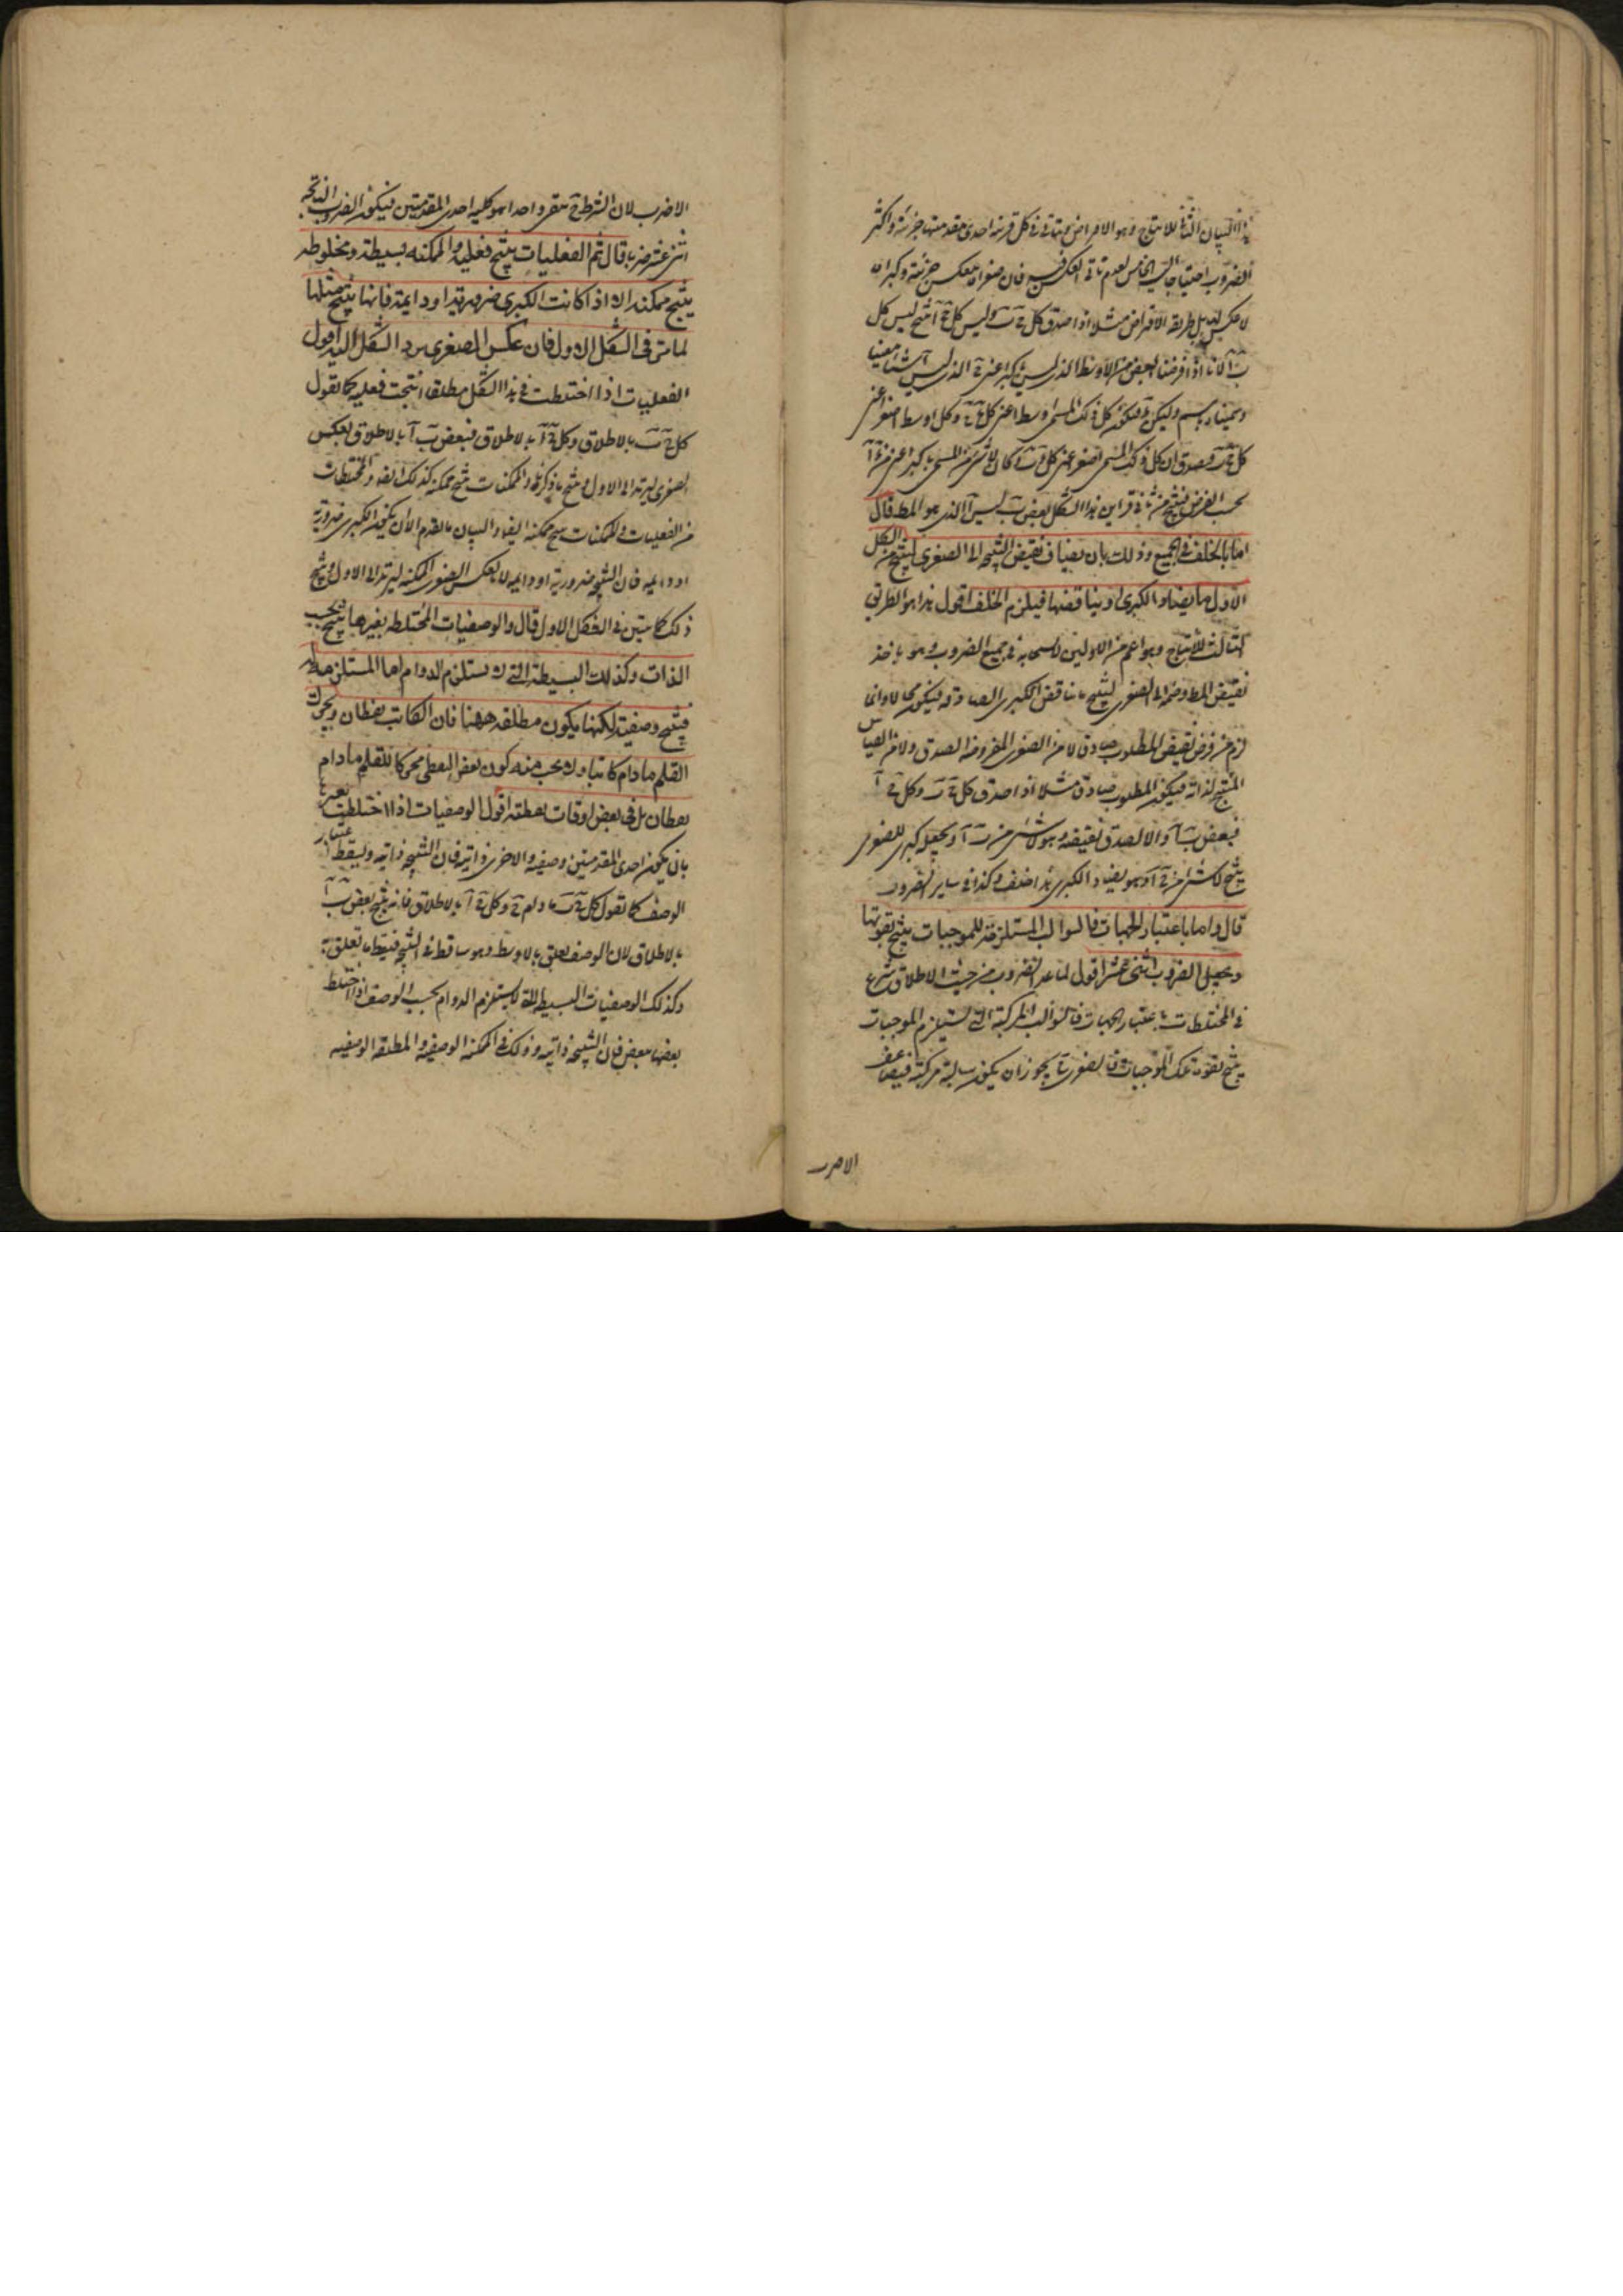 هذا البيان الثانى للانتاج وهو الافتراض ويتاتى فى كل قرينة احدى مقدمتيها جزئية واكثر
الضروب احتياجا اليه الخامس لعدم تاتى العكس فيه فان صغراه تنعكس جزئية وكبراه
لا تنعكس بل طريقه الافتراض مثلا اذا صدق كل ج ب وليس كل ج آ انتج ليس كل
ب آ لانا اذا فرضنا البعض من الاوسط الذى ليس باكبر اعنى ج الذى ليس آ شيئا معينا
وسميناه باسم وليكن د فيكون كل ذلك المسمى اوسط اعنى كل د ج وكل اوسط اصغر اعنى
كل ج ب فيصدق ان كل ذلك المسمى اصغر اعنى كل د ب وكان لا شىء من المسمى باكبر اعنى من د آ
بحسب الفرض فينتج من ثانى قراين هذا الشكل بعض ب ليس آ الذى هو المط قال
اما بالخلف فى الجميع وذلك بان يضاف نقيض النتيجه الى الصغرى لينتج من الشكل
الاول ما يضاد الكبرى او يناقضها فيلزم الخلف اقول هذا هو الطريق
الثالث للانتاج وهو اعم من الاولين لانسحابه فى جميع الضروب وهو باخذ
نقيض المط وضمه الى الصغرى لينتج ما يناقض الكبرى الصادقه فيكون محالا وانما
لزم من فرض نقيض المطلوب صادق لا من الصغرى المفروضه الصدق ولا من القياس
المنتج لذاته فيكون المطلوب صادق مثلا اذا صدق كل ج ب وكل ج آ
فبعض ب آ والا لصدق نقيضه وهو لا شىء من ب آ ويجعل كبرى للصغرى
ينتج لا شىء من ج آ وهو يضاد الكبرى هذا خلف وكذا فى ساير الضروب
قال واما باعتبار الجهات فالسوالب المستلزمة للموجبات ينتج بقوتها
ويجعل الضروب اثنى عشر اقول لما عد الضروب من حيث الاطلاق شرع
فى المختلطات باعتبار الجهات فالسوالب المركبة التى تستلزم الموجبات
ينتج بقوة تلك الموجبات فالصغرى يجوز ان يكون سالبة مركبة فيضاعف
الاضرب
الاضرب لان الشرط ح يبقى واحدا هو كلية احدى المقدمتين فيكون الضروب الناتجه
اثنى عشر ضربا قال ثم الفعليات ينتج فعليه والممكنه بسيطة ومخلوطه
ينتج ممكنه الا اذا كانت الكبرى ضرورية او دايمة فانها ينتج مثلها
لما مر فى الشكل الاول فان عكس الصغرى يرد الشكل اليه اقول
الفعليات اذا اختلطت فى هذا الشكل مطلقا انتجت فعليه كما تقول
كل ج ب بالاطلاق وكل ج آ بالاطلاق فبعض ب آ بالاطلاق بعكس
الصغرى ليرتد الى الاول وينتج ما ذكرناه والممكنات ينتج ممكنه كذلك ايضا والمختلطات
من الفعليات والممكنات ينتج ممكنه ايضا والبيان ما تقدم الا ان يكون الكبرى ضرورية
او دايميه فان النتيجه ضرورية او دايميه لانعكاس الصغرى الممكنه ليرتد الى الاول وينتج
ذلك كما تبين فى الشكل الاول قال والوصفيات المختلطه بغيرها ينتج بحسب
الذات وكذلك البسيطة التى لا يستلزم الدوام اما المستلزمه له
فينتج وصفية لكنها يكون مطلقه ههنا فان الكاتب يقظان ويحرك
القلم مادام كاتبا ولا يجب منه كون بعض اليقظى محركا للقلم مادام
يقظان بل فى بعض اوقات يقظته اقول الوصفيات اذا اختلطت بغيرها
بان يكون احدى المقدمتين وصفيه والاخرى ذاتيه فان النتيجه ذاتيه ويسقط اعتبار
الوصف كما تقول كل ج ب مادام ج وكل ج آ بالاطلاق فانه ينتج بعض ب آ
بالاطلاق لان الوصف تعلق بالاوسط وهو ساقط فى النتيجه فيسقط ما تعلق به
وكذلك الوصفيات البسيطه التى لا يستلزم الدوام بحسب الوصف اذا اختلط
بعضها ببعض فان النتيجه ذاتيه وذلك فى الممكنه الوصفيه والمطلقه الوصفيه